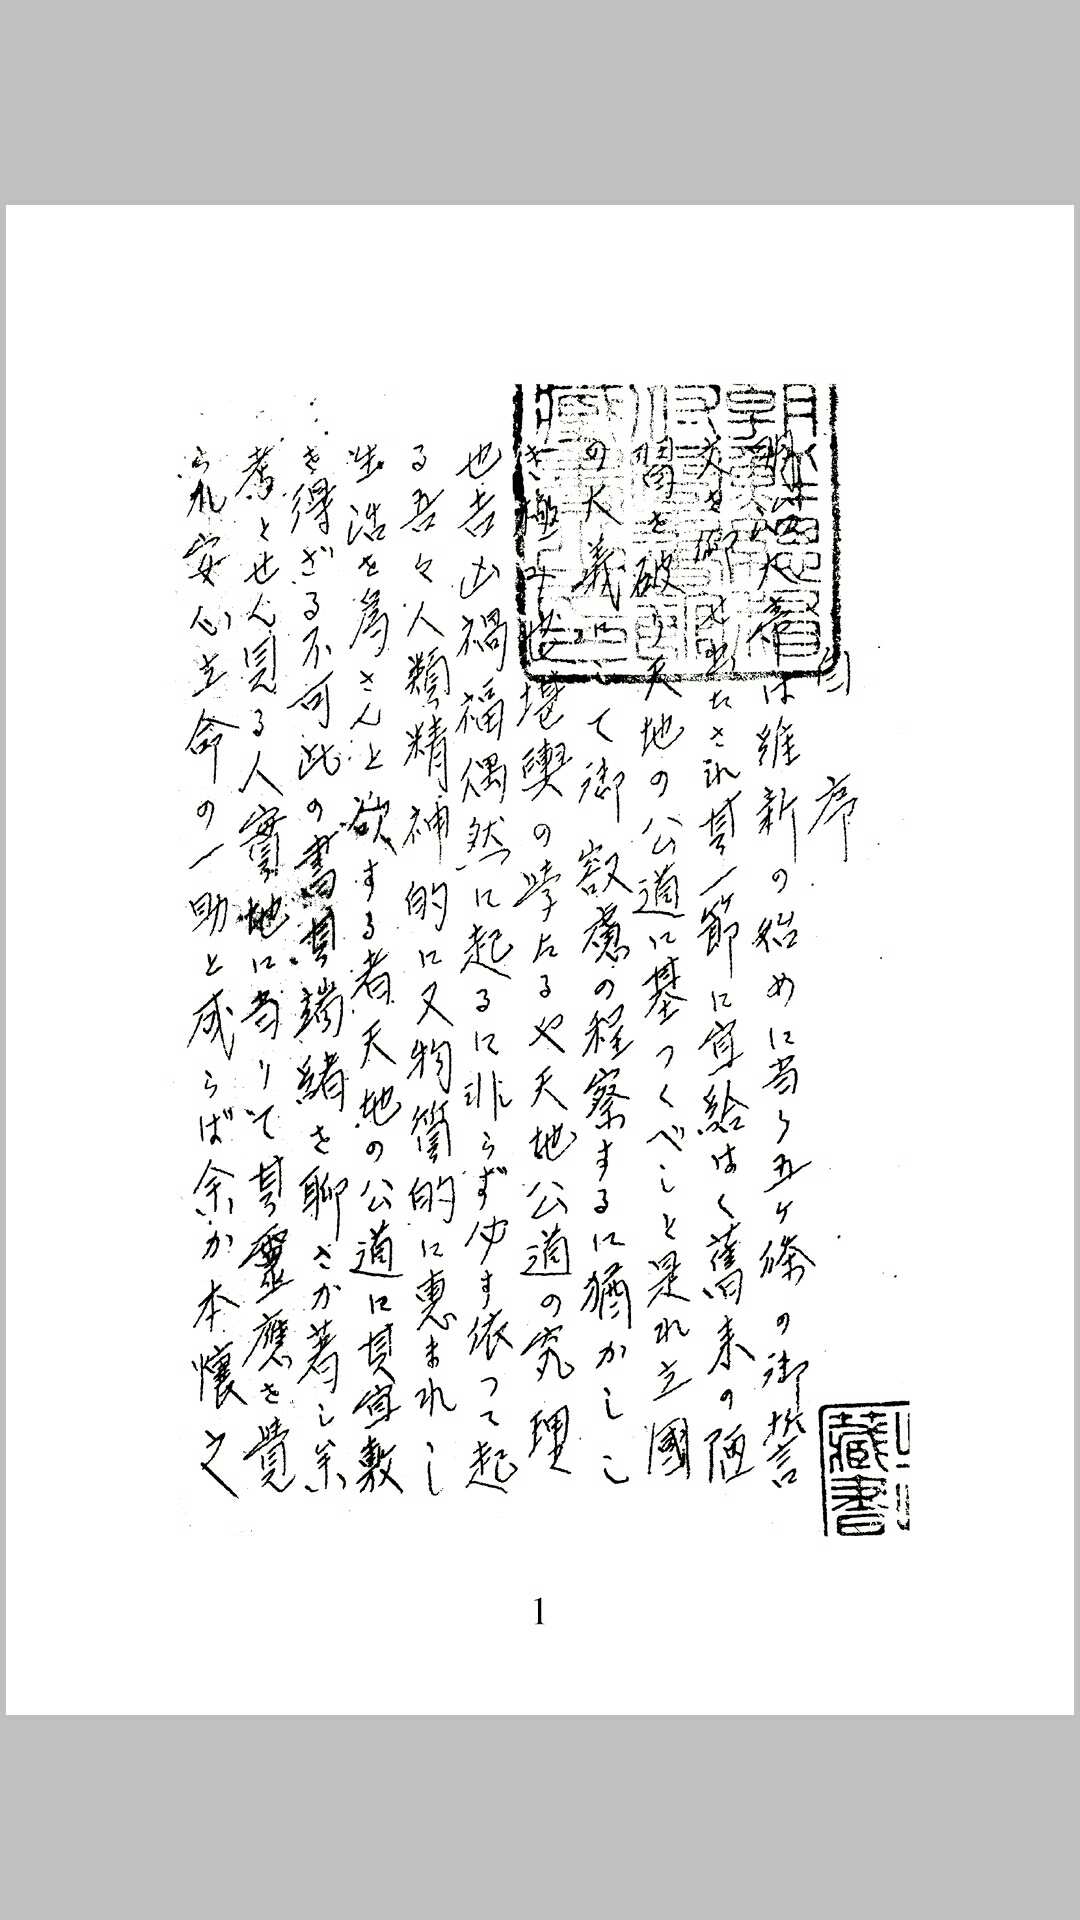 自序
明治大帝は維新の始めに当り五ヶ條の御誓
文を御 出たされ其一節に宣給はく舊来の陋
習を破り天地の公道に基つくべしと是れ立國
の大義にして御 叡慮の程察するに猶かしこ
き極み 堪輿の学たるや天地公道の究理
也吉凶禍福偶然に起るに非らず必す依つて起
る吾々人類精神的に又物質的に恵まれし
生活を為さんと欲する者天地の公道に其宜敷
を得ざる不可此の書其端緒を聊さか著し余
考とせん見る人實地に当りて其靈應を覺
られ安心立命の一助と成らば余か本懐之
藏書
1